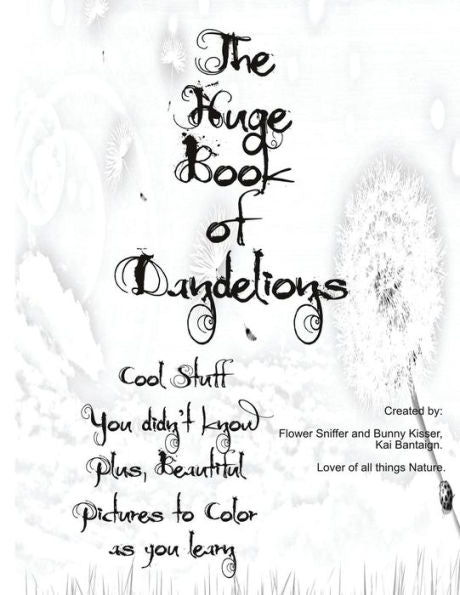 The
Huge
Book
of
Dandelions
Cool Stuff
You didn't know
Plus, Beautiful
Pictures to Color
as you learn
Created by:
Flower Sniffer and Bunny Kisser,
Kai Bantaign.
Lover of all things Nature.